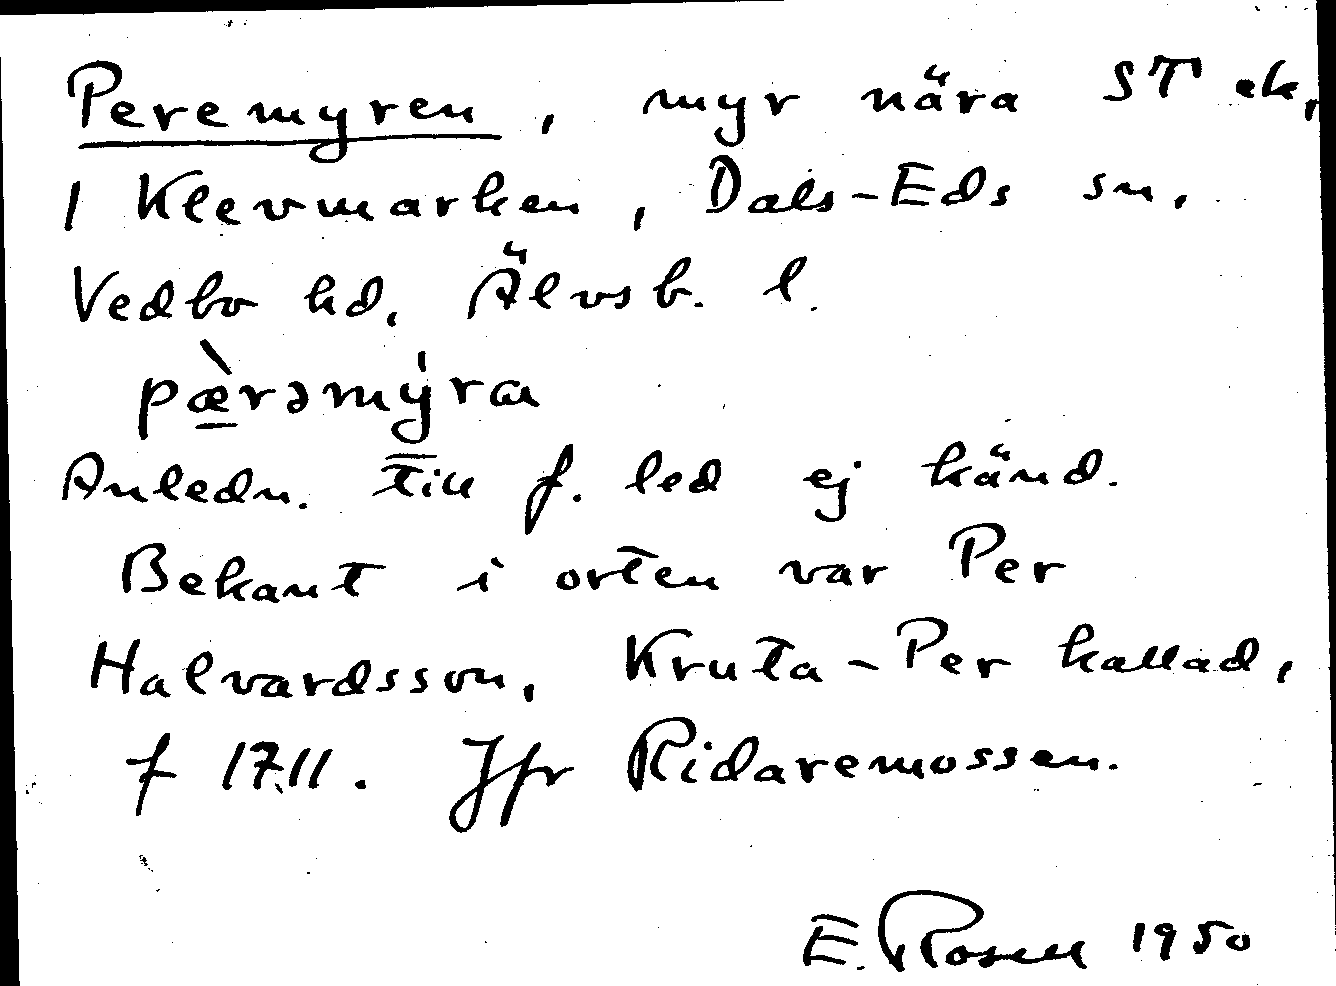 Peremyren, myr nära ST ek,
1 Klevmarken, Dals-Eds sn,
Vedbo hd, Älvsb. l.
pæ̀rəmy̍ra
Anledn. till f. led ej känd.
Bekant i orten var Per
Halvardsson, Kruta-Per kallad,
f 1711. Jfr Ridaremossen.
E. Rosell 1950